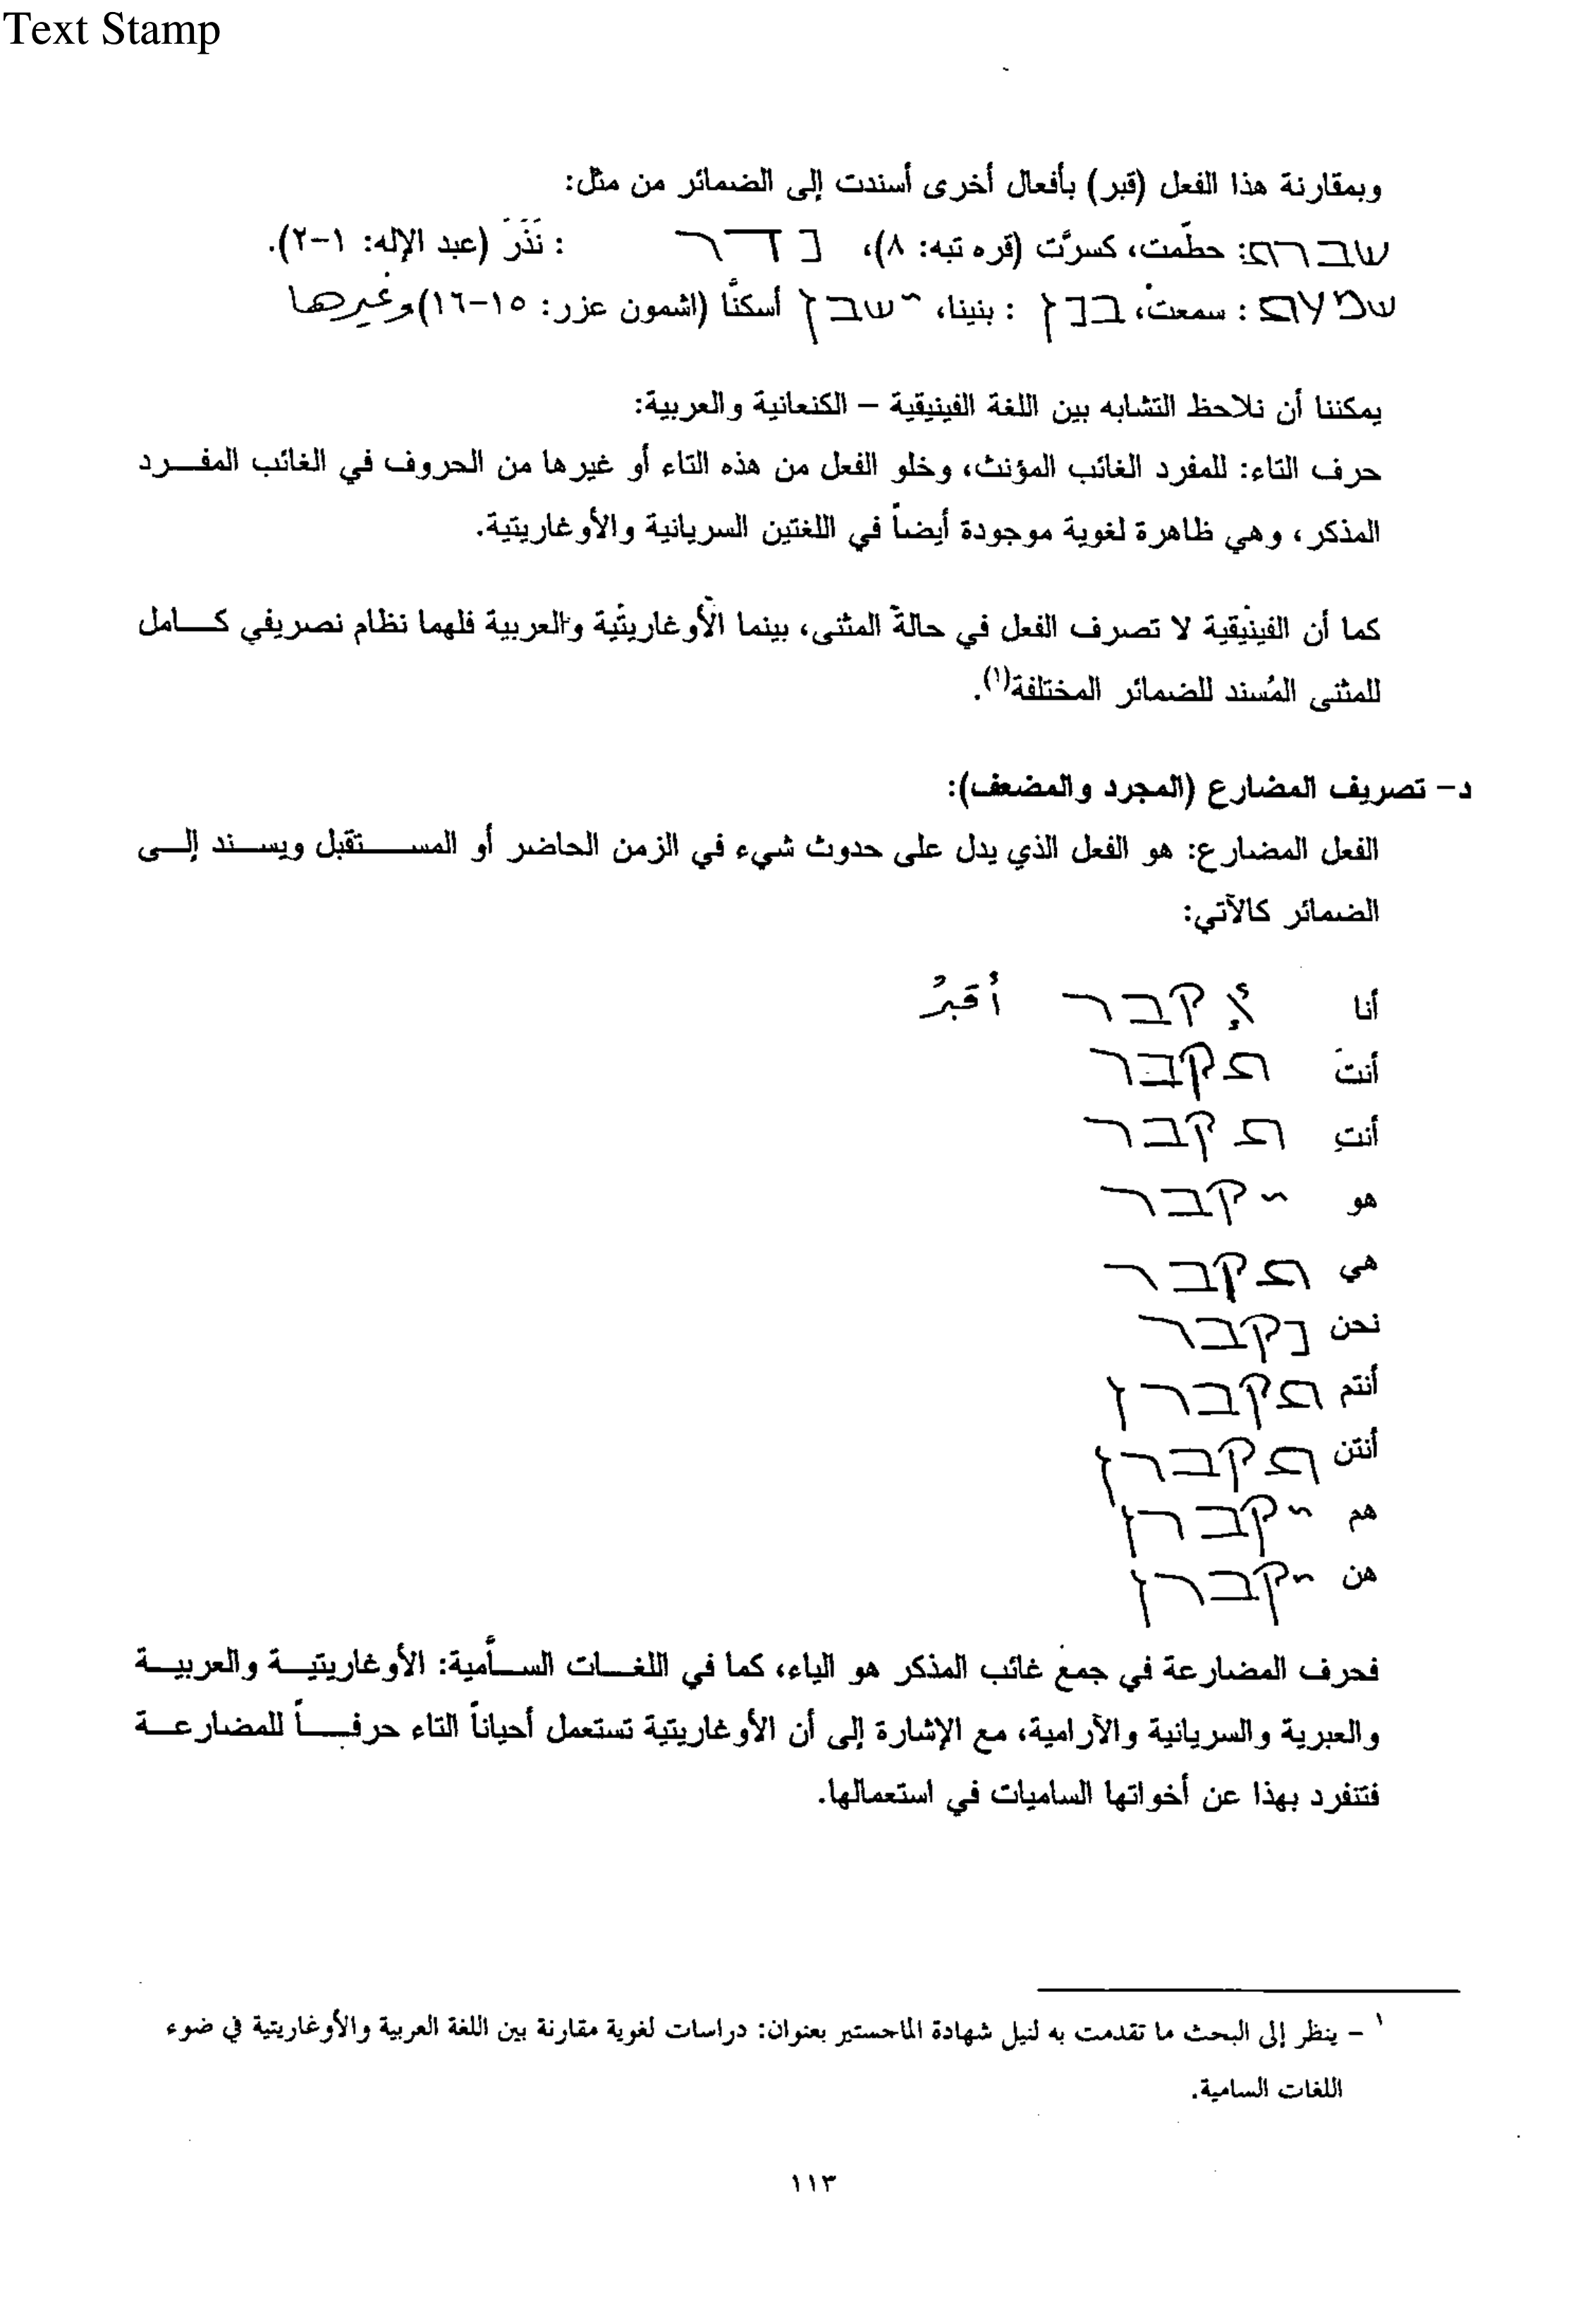 Text Stamp
وبمقارنة هذا الفعل (قبر) بأفعال أخرى أسندت إلى الضمائر من مثل:
שברת: حطّمت، كسرَّت (قره تبه: ٨)، נדר : نَذَرَ (عبد الإله: ١-٢).
שמעת : سمعت، בנן : بنينا، ישבן أسكنَّا (اشمون عزر: ١٥-١٦) وغيرها
يمكننا أن نلاحظ التشابه بين اللغة الفينيقية – الكنعانية والعربية:
حرف التاء: للمفرد الغائب المؤنث، وخلو الفعل من هذه التاء أو غيرها من الحروف في الغائب المفـــرد
المذكر، وهي ظاهرة لغوية موجودة أيضاً في اللغتين السريانية والأوغاريتية.
كما أن الفينيقية لا تصرف الفعل في حالة المثنى، بينما الأوغاريتية والعربية فلهما نظام تصريفي كـــامل
للمثنى المُسند للضمائر المختلفة(١).
د- تصريف المضارع (المجرد والمضعف):
الفعل المضارع: هو الفعل الذي يدل على حدوث شيء في الزمن الحاضر أو المســـتقبل ويســند إلــى
الضمائر كالآتي:
أنا אקבר أُقبرُ
أنتَ תקבר
أنتِ תקבר
هو יקבר
هي תקבר
نحن נקבר
أنتم תקברן
أنتن תקברן
هم יקברן
هن יקברן
فحرف المضارعة في جمع غائب المذكر هو الياء، كما في اللغــات الســامية: الأوغاريتيــة والعربيــة
والعبرية والسريانية والآرامية، مع الإشارة إلى أن الأوغاريتية تستعمل أحياناً التاء حرفـــاً للمضارعــة
فتنفرد بهذا عن أخواتها الساميات في استعمالها.
١ – ينظر إلى البحث ما تقدمت به لنيل شهادة الماجستير بعنوان: دراسات لغوية مقارنة بين اللغة العربية والأوغاريتية في ضوء
اللغات السامية.
١١٣